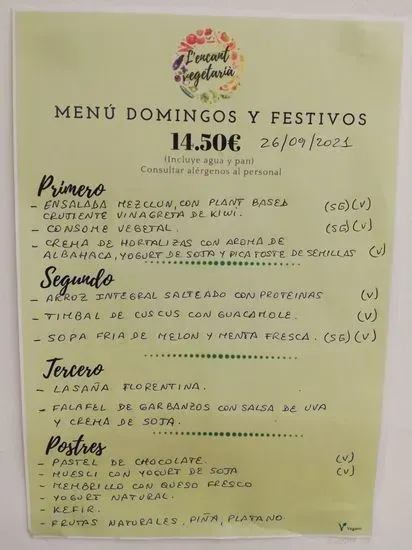 L'encant
vegetarià
MENÚ DOMINGOS Y FESTIVOS
14.50€ 26/09/2021
(Incluye agua y pan)
Consultar alérgenos al personal
Primero
- ENSALADA MEZCLUN, CON PLANT BASED
CRUJIENTE VINAGRETA DE KIWI. (SG)(V)
- CONSOME VEGETAL. (SG)(V)
- CREMA DE HORTALIZAS CON AROMA DE
ALBAHACA, YOGURT DE SOJA Y PICATOSTE DE SEMILLAS (V)
Segundo
- ARROZ INTEGRAL SALTEADO CON PROTEINAS (V)
- TIMBAL DE CUSCUS CON GUACAMOLE. (V)
- SOPA FRIA DE MELON Y MENTA FRESCA. (SG)(V)
Tercero
- LASAÑA FLORENTINA.
- FALAFEL DE GARBANZOS CON SALSA DE UVA
Y CREMA DE SOJA.
Postres
- PASTEL DE CHOCOLATE. (V)
- MUESLI CON YOGURT DE SOJA (V)
- MEMBRILLO CON QUESO FRESCO
- YOGURT NATURAL.
- KEFIR.
- FRUTAS NATURALES, PIÑA, PLATANO.
Vegano